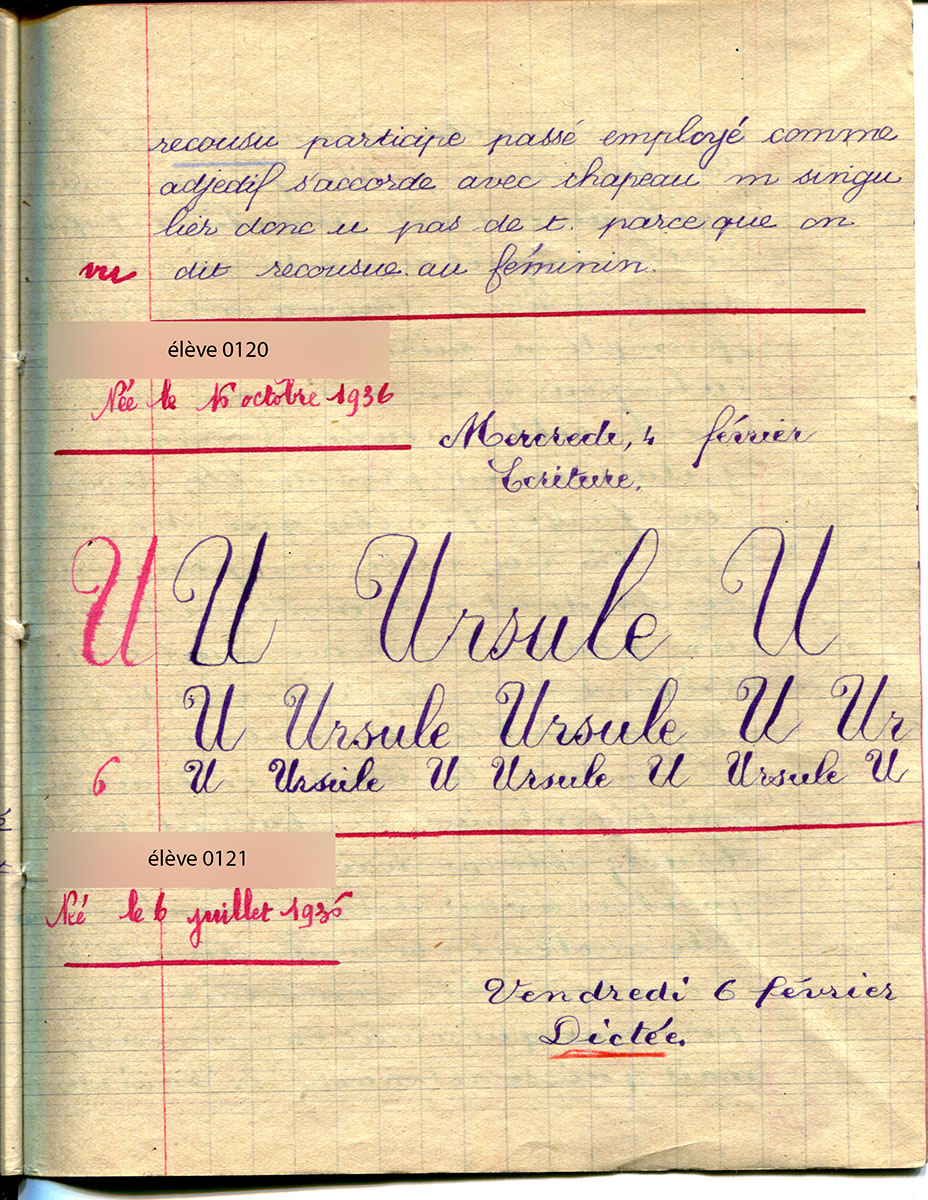 recousu participe passé employé comme
adjedif s'accorde avec chapeau m singu
lier donc u pas de t. parce que on
vu dit recousue au féminin.
élève 0120
Née le 16 octobre 1936
Mercredi, 4 février
Ecriture.
U U Ursule U
U Ursule Ursule U Ur
6 U Ursule U Ursule U Ursule U
élève 0121
Né le 6 juillet 1936
Vendredi 6 février
Dictée.